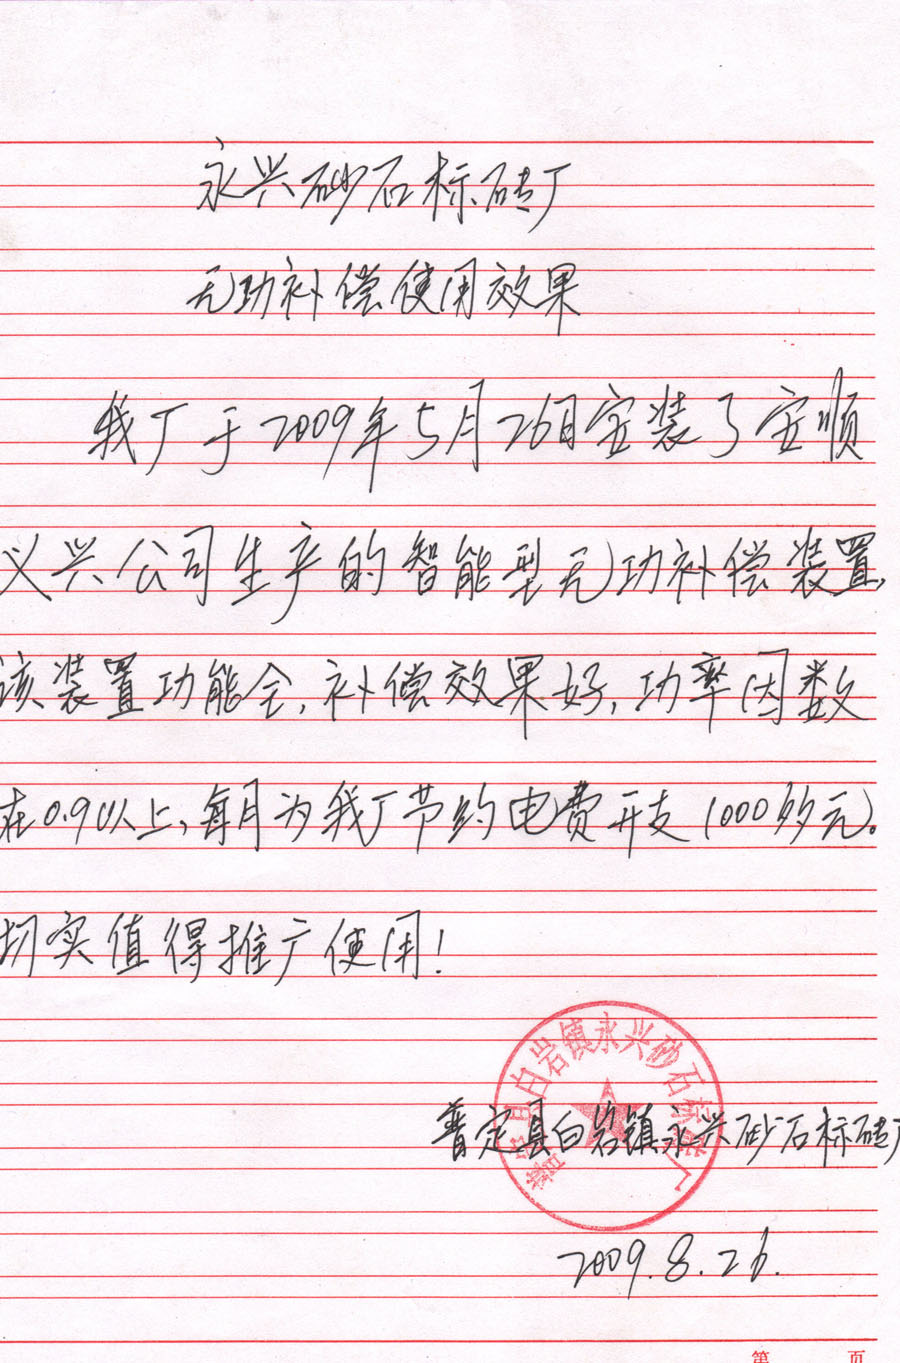 永兴砂石标砖厂
无功补偿使用效果
我厂于2009年5月26日安装了安顺
义兴公司生产的智能型无功补偿装置,
该装置功能全,补偿效果好,功率因数
在0.9以上,每月为我厂节约电费开支1000多元。
切实值得推广使用!
普定县白岩镇永兴砂石标砖厂
普定县白岩镇永兴砂石标砖厂
2009.8.26.
第 页